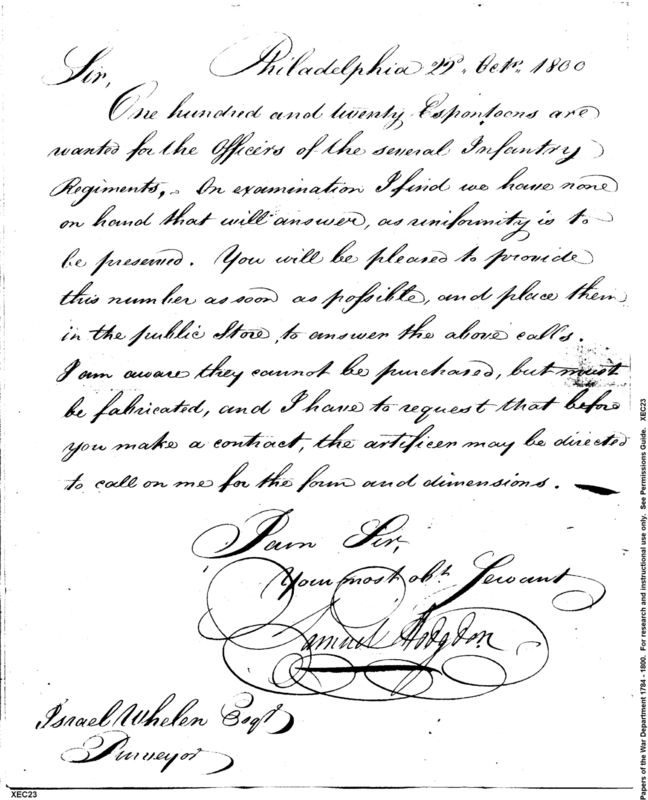 Philadelphia 22d. Octr. 1800
Sir,
One hundred and twenty Espontoons are
wanted for the Officers of the several Infantry
Regiments, On examination I find we have none
on hand that will answer, as uniformity is to
be preserved. You will be pleased to provide
this number as soon as possible, and place them
in the public Store, to answer the above calls.
I am aware they cannot be purchased, but must
be fabricated, and I have to request that before
you make a contract, the artificer may be directed
to call on me for the form and dimensions.
I am Sir,
Your most obt. Servant
Samuel Hodgdon
Israel Whelen Esqr
Purveyor
XEC23
Papers of the War Department 1784 - 1800. For research and instructional use only. See Permissions Guide. XEC23